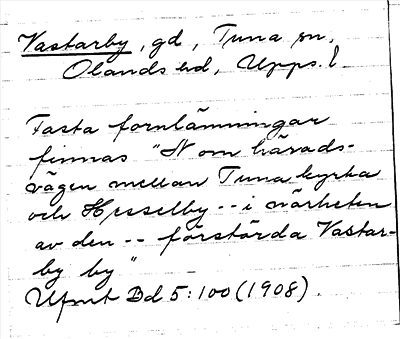 Vastarby, gd, Tuna sn,
Olands hd, Upps. l.
Fasta fornlämningar
finnas "N om härads-
vägen mellan Tuna kyrka
och Hesselby -- i närheten
av den -- förstörda Vastar-
by by"
Ufmt Bd 5:100 (1908).